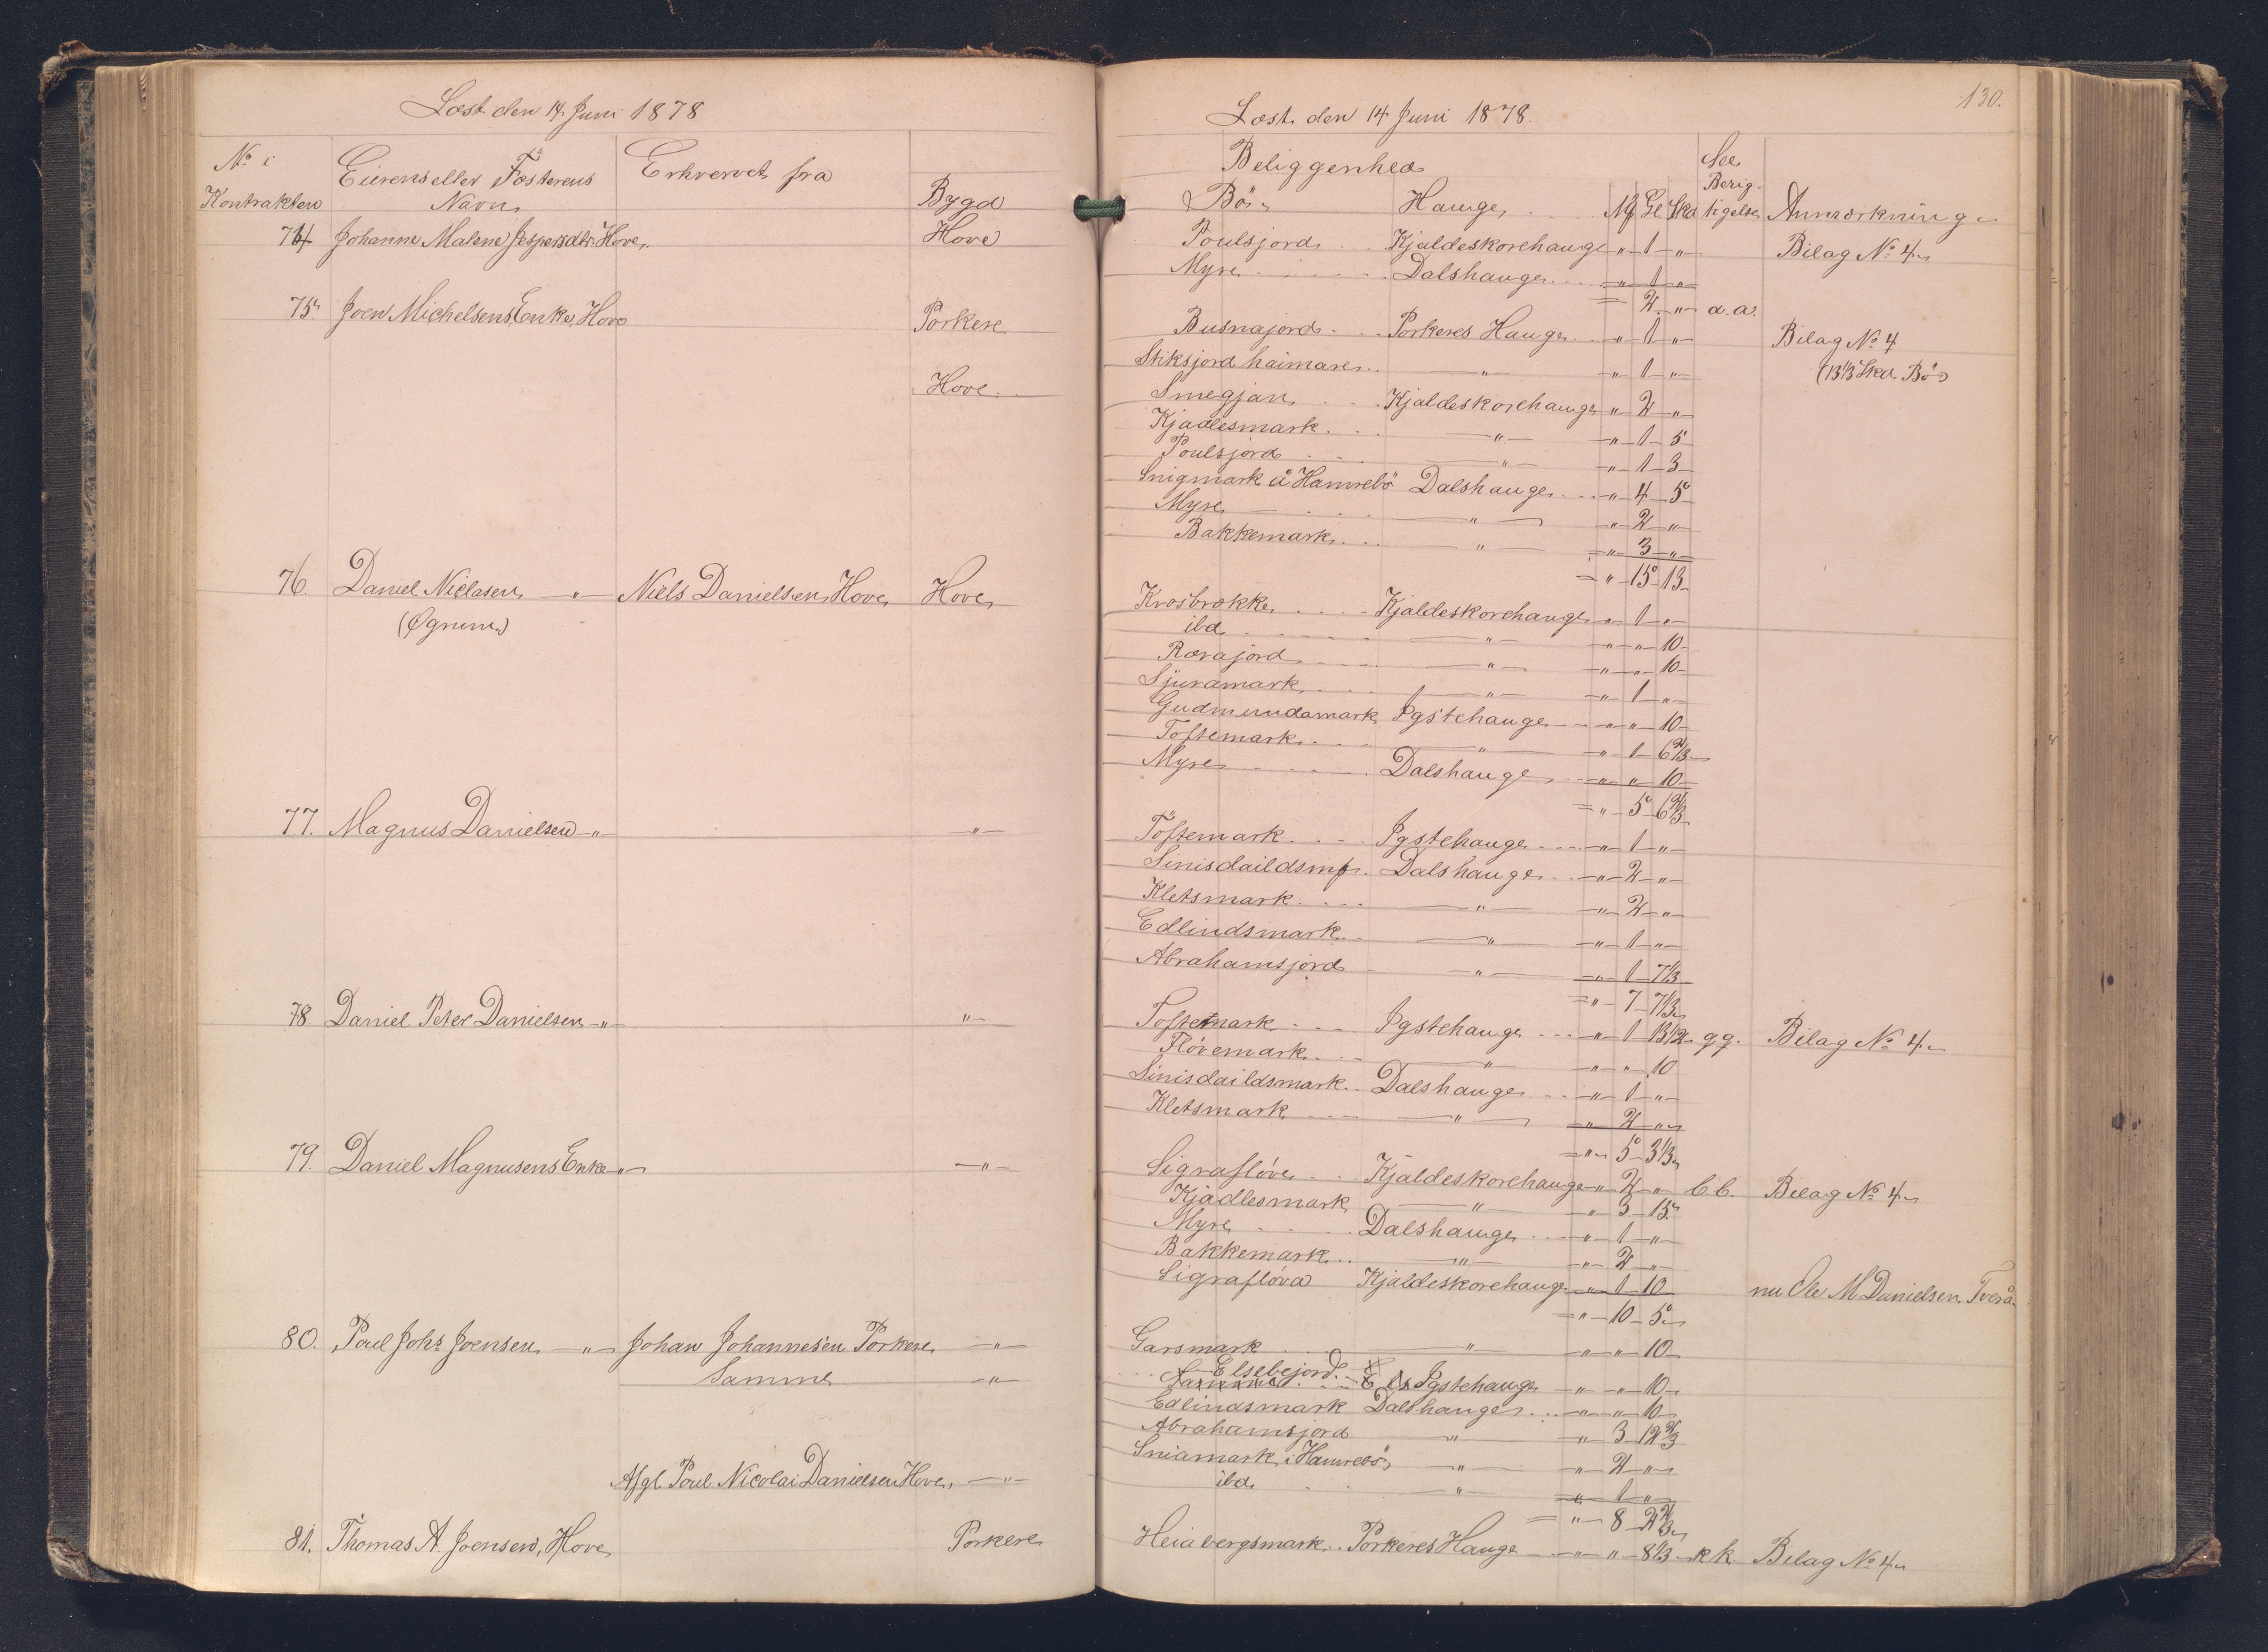 Læst den 14 Juni 1878
No i Kontrakten
Eierens eller Fösterens Navn
Erhvervet fra
Bygd
74 Johanne Malene Jespersdtr. Hove Hove
75 Joen Michelsens Enke, Hove Porkere
Hove
76 Daniel Niclasen " Niels Danielsen Hove Hove
(Øgrum)
77. Magnus Danielsen " "
78 Daniel Peter Danielsen " "
79. Daniel Magnusens Enke " "
80. Poul Johs Joensen " Johan Johannesen Porkere "
Samme "
Afgl. Poul Nicolai Danielsen Hove, "
81. Thomas A. Joensen, Hove Porkere
130.
Læst den 14 Juni 1878.
Beliggenhed
See Berigtigelse
Bö Hauge Mk Gl. Skd Anmærkning
Poulsjord Kjaldeskorehauge " 1 " Bilag No 4
Myre Dalshauge " 1 "
= 2 " a.a.
Busnajord Porkeres Hauge " 1 " Bilag No 4
Stiksjord haimare " " 1 " (13 1/3 Skd Bö)
Smegjan Kjaldeskorehauge " 2 "
Kjadlesmark " " 1 5
Poulsjord " " 1 3
Snigmark å Hamrebö Dalshauge " 4 5
Myre " " 2 "
Bakkemark " " 3 "
= " 15 13
Krosbrække Kjaldeskorehauge " 1 "
ibd " " " 10
Rovajord " " " 10
Sjuramark " " 1 "
Gudmundamark Igstehauge " " 10
Toftemark " " 1 6 2/3
Myre Dalshauge " " 10
= " 5 6 2/3
Toftemark Igstehauge " 1 "
Sinisdaildsmk. Dalshauge " 2 "
Kletsmark " " 2 "
Edlindsmark " " 1 "
Abrahamsjord " " 1 7 1/3
= " 7 7 1/3
Toftemark Igstehauge " 1 13 1/2 g g. Bilag No 4
Flóvemark " " " 10
Sinisdaildsmark Dalshauge " 1 "
Kletsmark " " 2 "
= " 5 3 1/3
Sigraflóve Kjaldeskorehauge " 2 " b.b. Bilag No 4
Kjadlesmark " " 3 15
Myre Dalshauge " 1 "
Bakkemark " " 2 "
Sigraflóva Kjaldeskorehauge " 1 10 nu Ole M Danielsen Tverå
= " 10 5
Garsmark " " " 10
Elsebejord Igstehauge " " 10
Edlindsmark Dalshauge " " 10
Abrahamsjord " " 3 12 2/3
Sniamark i Hamrebö " " 2 "
ibd. " " 1 "
= " 8 2 2/3
Heiabergsmark Porkeres Hauge " " 8 1/3 k k. Bilag No 4